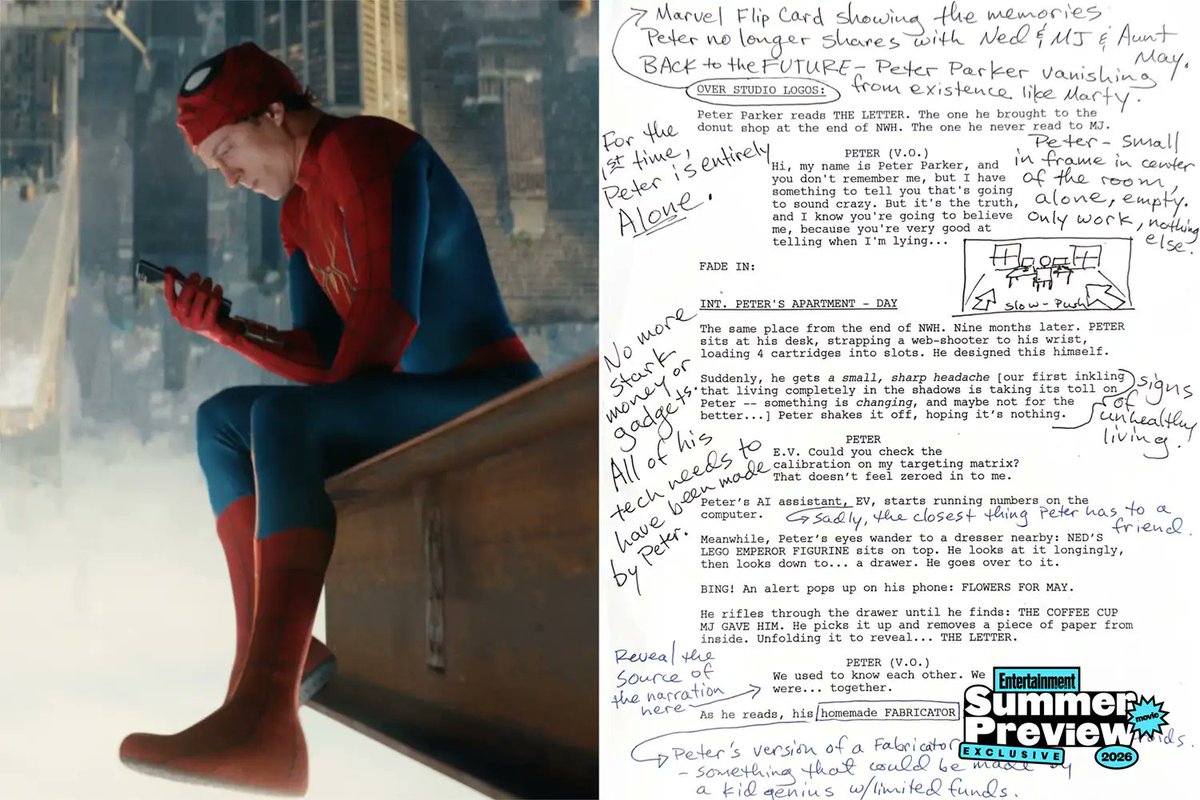 Marvel Flip Card showing the memories
Peter no longer shares with Ned & MJ & Aunt May.
BACK to the FUTURE - Peter Parker vanishing
from existence like Marty.
OVER STUDIO LOGOS:
Peter Parker reads THE LETTER. The one he brought to the
donut shop at the end of NWH. The one he never read to MJ.
For the
1st time,
Peter is entirely
Alone.
PETER (V.O.)
Hi, my name is Peter Parker, and
you don't remember me, but I have
something to tell you that's going
to sound crazy. But it's the truth,
and I know you're going to believe
me, because you're very good at
telling when I'm lying...
Peter - small
in frame in center
of the room,
alone, empty.
only work, nothing
else.
FADE IN:
slow-push
INT. PETER'S APARTMENT - DAY
The same place from the end of NWH. Nine months later. PETER
sits at his desk, strapping a web-shooter to his wrist,
loading 4 cartridges into slots. He designed this himself.
No more
stark
money or
gadgets.
All of his
tech needs to
have been made
by Peter.
Suddenly, he gets a small, sharp headache [our first inkling
that living completely in the shadows is taking its toll on
Peter -- something is changing, and maybe not for the
better...] Peter shakes it off, hoping it's nothing.
signs
of
unhealthy
living.
PETER
E.V. Could you check the
calibration on my targeting matrix?
That doesn't feel zeroed in to me.
Peter's AI assistant, EV, starts running numbers on the
computer.
sadly, the closest thing Peter has to a
friend.
Meanwhile, Peter's eyes wander to a dresser nearby: NED'S
LEGO EMPEROR FIGURINE sits on top. He looks at it longingly,
then looks down to... a drawer. He goes over to it.
BING! An alert pops up on his phone: FLOWERS FOR MAY.
He rifles through the drawer until he finds: THE COFFEE CUP
MJ GAVE HIM. He picks it up and removes a piece of paper from
inside. Unfolding it to reveal... THE LETTER.
Reveal the
source of
the narration
here
PETER (V.O.)
We used to know each other. We
were... together.
As he reads, his homemade FABRICATOR
Peter's version of a Fabricator
- something that could be made by
a kid genius w/limited funds.
Entertainment
Summer
movie
Preview
EXCLUSIVE
2026